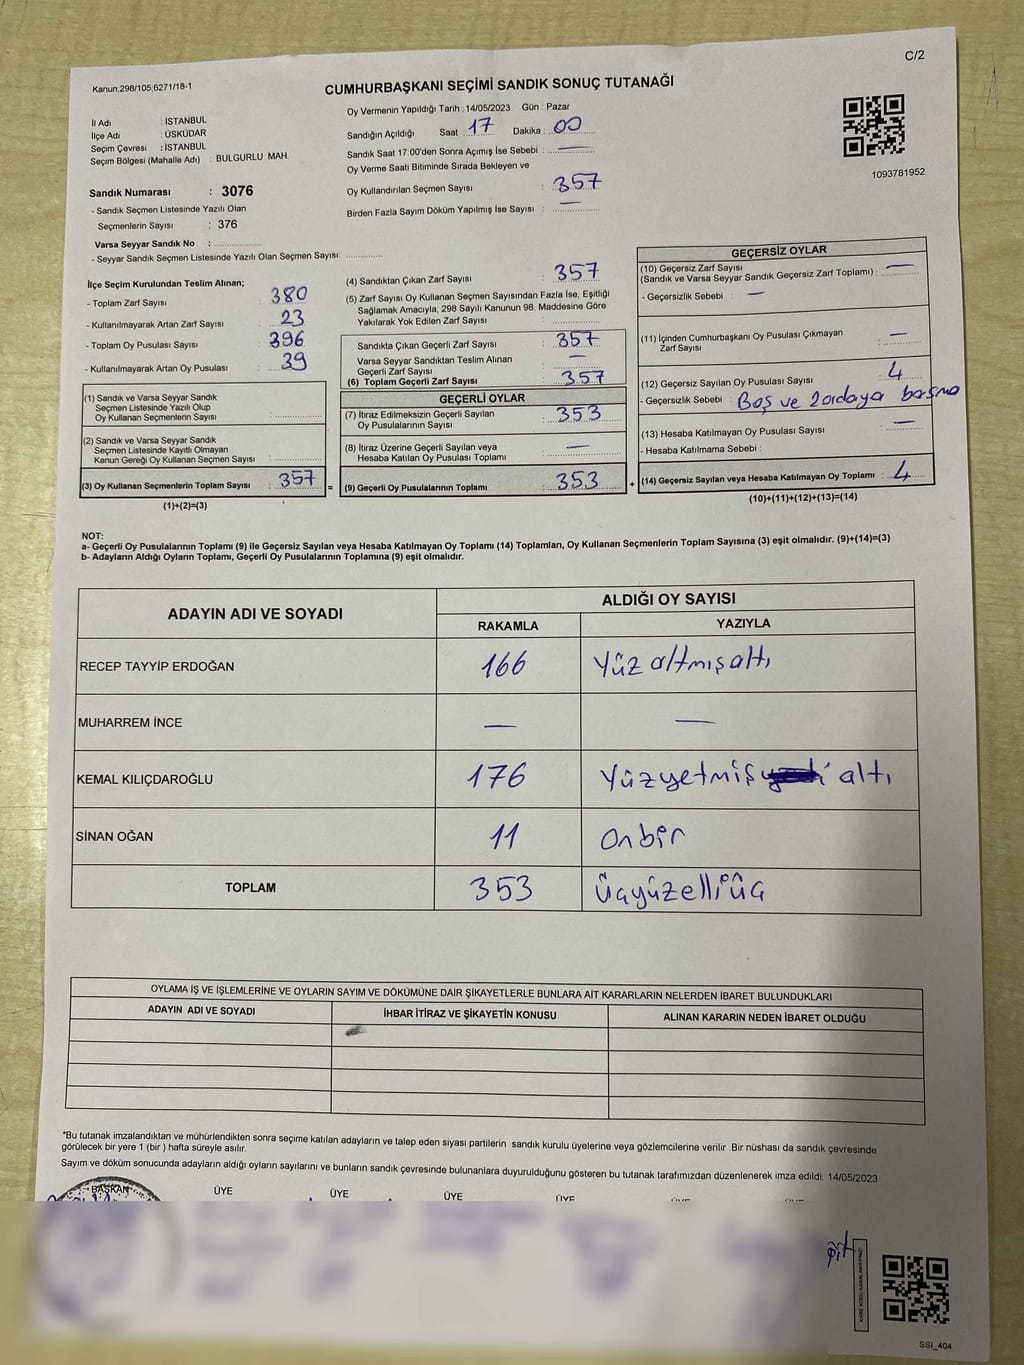 C/2
Kanun;298/105;6271/18-1
CUMHURBAŞKANI SEÇİMİ SANDIK SONUÇ TUTANAĞI
İl Adı : İSTANBUL
İlçe Adı : ÜSKÜDAR
Seçim Çevresi : İSTANBUL
Seçim Bölgesi (Mahalle Adı) : BULGURLU MAH.
Sandık Numarası : 3076
- Sandık Seçmen Listesinde Yazılı Olan
Seçmenlerin Sayısı : 376
Varsa Seyyar Sandık No :
- Seyyar Sandık Seçmen Listesinde Yazılı Olan Seçmen Sayısı:
Oy Vermenin Yapıldığı Tarih : 14/05/2023 Gün : Pazar
Sandığın Açıldığı Saat : 17 Dakika : 00
Sandık Saat 17:00'den Sonra Açımış İse Sebebi : —
Oy Verme Saati Bitiminde Sırada Bekleyen ve
Oy Kullandırılan Seçmen Sayısı : 357
Birden Fazla Sayım Döküm Yapılmış İse Sayısı : —
1093781952
İlçe Seçim Kurulundan Teslim Alınan;
- Toplam Zarf Sayısı : 380
- Kullanılmayarak Artan Zarf Sayısı : 23
- Toplam Oy Pusulası Sayısı : 396
- Kullanılmayarak Artan Oy Pusulası : 39
(1) Sandık ve Varsa Seyyar Sandık
Seçmen Listesinde Yazılı Olup
Oy Kullanan Seçmenlerin Sayısı :
(2) Sandık ve Varsa Seyyar Sandık
Seçmen Listesinde Kayıtlı Olmayan
Kanun Gereği Oy Kullanan Seçmen Sayısı :
(3) Oy Kullanan Seçmenlerin Toplam Sayısı : 357 =
(1)+(2)=(3)
(4) Sandıktan Çıkan Zarf Sayısı : 357
(5) Zarf Sayısı Oy Kullanan Seçmen Sayısından Fazla İse, Eşitliği
Sağlamak Amacıyla, 298 Sayılı Kanunun 98. Maddesine Göre
Yakılarak Yok Edilen Zarf Sayısı :
Sandıkta Çıkan Geçerli Zarf Sayısı : 357
Varsa Seyyar Sandıktan Teslim Alınan
Geçerli Zarf Sayısı : —
(6) Toplam Geçerli Zarf Sayısı : 357
GEÇERLİ OYLAR
(7) İtiraz Edilmeksizin Geçerli Sayılan
Oy Pusulalarının Sayısı : 353
(8) İtiraz Üzerine Geçerli Sayılan veya
Hesaba Katılan Oy Pusulası Toplamı : —
(9) Geçerli Oy Pusulalarının Toplamı : 353 +
GEÇERSİZ OYLAR
(10) Geçersiz Zarf Sayısı
(Sandık ve Varsa Seyyar Sandık Geçersiz Zarf Toplamı) : —
- Geçersizlik Sebebi : —
(11) İçinden Cumhurbaşkanı Oy Pusulası Çıkmayan
Zarf Sayısı : —
(12) Geçersiz Sayılan Oy Pusulası Sayısı : 4
- Geçersizlik Sebebi : Boş ve 2 ordaya basma
(13) Hesaba Katılmayan Oy Pusulası Sayısı : —
- Hesaba Katılmama Sebebi :
(14) Geçersiz Sayılan veya Hesaba Katılmayan Oy Toplamı : 4
(10)+(11)+(12)+(13)=(14)
NOT:
a- Geçerli Oy Pusulalarının Toplamı (9) ile Geçersiz Sayılan veya Hesaba Katılmayan Oy Toplamı (14) Toplamları, Oy Kullanan Seçmenlerin Toplam Sayısına (3) eşit olmalıdır. (9)+(14)=(3)
b- Adayların Aldığı Oyların Toplamı, Geçerli Oy Pusulalarının Toplamına (9) eşit olmalıdır.
ADAYIN ADI VE SOYADI ALDIĞI OY SAYISI
RAKAMLA YAZIYLA
RECEP TAYYİP ERDOĞAN 166 Yüz altmış altı
MUHARREM İNCE — —
KEMAL KILIÇDAROĞLU 176 Yüzyetmiş altı
SİNAN OĞAN 11 Onbir
TOPLAM 353 Üçyüzelliüç
OYLAMA İŞ VE İŞLEMLERİNE VE OYLARIN SAYIM VE DÖKÜMÜNE DAİR ŞİKAYETLERLE BUNLARA AİT KARARLARIN NELERDEN İBARET BULUNDUKLARI
ADAYIN ADI VE SOYADI İHBAR İTİRAZ VE ŞİKAYETİN KONUSU ALINAN KARARIN NEDEN İBARET OLDUĞU
*Bu tutanak imzalandıktan ve mühürlendikten sonra seçime katılan adayların ve talep eden siyasi partilerin sandık kurulu üyelerine veya gözlemcilerine verilir. Bir nüshası da sandık çevresinde
görülecek bir yere 1 (bir ) hafta süreyle asılır.
Sayım ve döküm sonucunda adayların aldığı oyların sayılarını ve bunların sandık çevresinde bulunanlara duyurulduğunu gösteren bu tutanak tarafımızdan düzenlenerek imza edildi. 14/05/2023
BAŞKAN ÜYE ÜYE ÜYE ÜYE
SSI_404